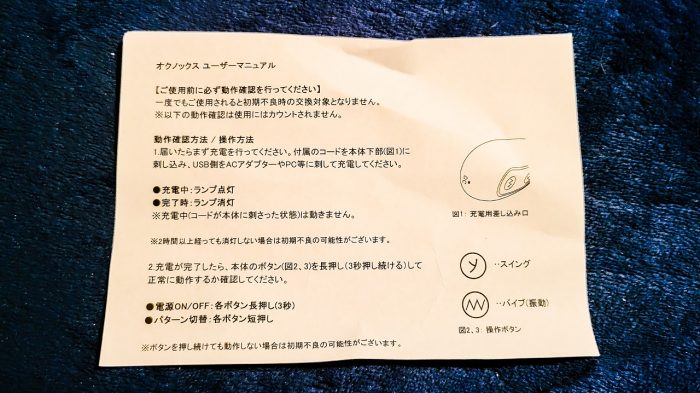 オクノックス ユーザーマニュアル
【ご使用前に必ず動作確認を行ってください】
一度でもご使用されると初期不良時の交換対象となりません。
※以下の動作確認は使用にはカウントされません。
動作確認方法 / 操作方法
1.届いたらまず充電を行ってください。付属のコードを本体下部(図1)に
刺し込み、USB側をACアダプターやPC等に刺して充電してください。
●充電中:ランプ点灯
●完了時:ランプ消灯
※充電中(コードが本体に刺さった状態)は動きません。
※2時間以上経っても消灯しない場合は初期不良の可能性がございます。
図1: 充電用差し込み口
2.充電が完了したら、本体のボタン(図2、3)を長押し(3秒押し続ける)して
正常に動作するか確認してください。
●電源ON/OFF:各ボタン長押し(3秒)
●パターン切替:各ボタン短押し
※ボタンを押し続けても動作しない場合は初期不良の可能性がございます。
‥スイング
‥バイブ(振動)
図2、3: 操作ボタン